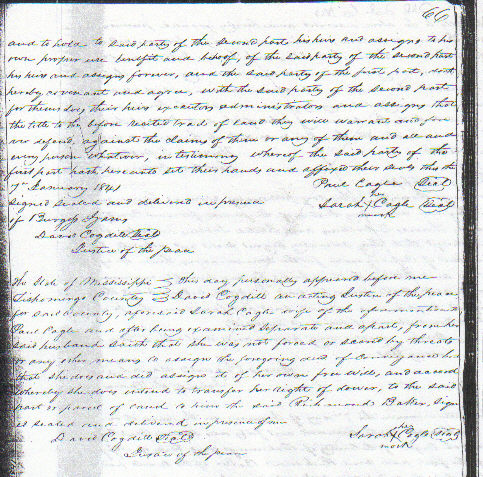 66
and to hold to said party of the second part his heirs and assigns to his
own proper use benefit and behoof, of the said party of the second part
his heirs and assigns forever, and the said party of the first part, doth
hereby covenant and agree, with the said party of the second part
for themselves, their heirs executors administrators and assigns that
the title to the before recited tract of land they will warrant and fore
ver defend, against the claims of them or any of them and all and
every person whatever, in testimony whereof the said party of the
first part hath hereunto set their hands and affixed their seals this the
7th January 1841 Paul Cagle Seal
Signed sealed and delivered in presence Sarah X Cagle Seal
her
mark
of Burgess
David Cogdell Seal
Justice of the peace
The State of Mississippi This day personally appeared before me
Tishomingo County David Cogdell an acting Justice of the peace
for said county, aforesaid Sarah Cagle wife of the aforementioned
Paul Cagle and after being examined separate and apart, from her
said husband saith that she was not forced or scared by threats
or any other means to assign the foregoing deed of Conveyance but
that she does and did assign it of her own free will, and accord
whereby she does intend to transfer her right of dower, to the said
part or parcel of land to him the said Richmond Baker, sign
ed sealed and delivered in presence of me
David Cogdell Seal Sarah X Cagle Seal
her
mark
Justice of the peace